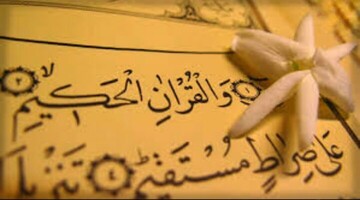 ۝١ وَالْقُرْآنِ الْحَكِيمِ ۙ ۝٢
عَلَىٰ صِرَاطٍ مُسْتَقِيمٍ ۝٤